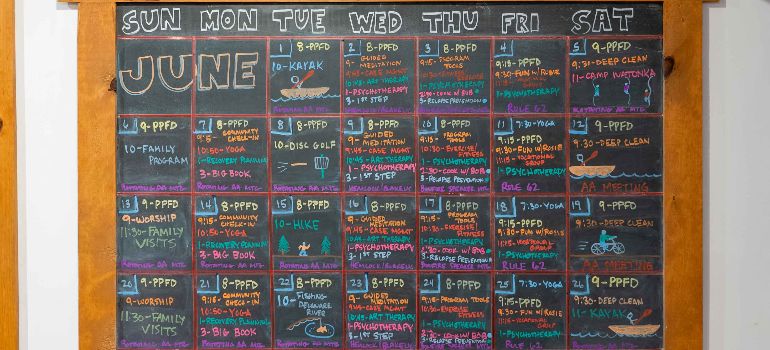 SUN MON TUE WED THU FRI SAT
JUNE
1 8-PPFD
10-KAYAK
ROTATING AA MTG
2 8-PPFD
9-GUIDED
MEDITATION
9:45-CASE MGMT
10:45-ART THERAPY
1-PSYCHOTHERAPY
3-1ST STEP
HEMLOCK/BLAKELY
3 8-PPFD
9:15-PROGRAM
TOOLS
1-PSYCHOTHERAPY
2:30-COOK W/BOB
3-RELAPSE PREVENTION
4
9:15-PPFD
9:30-FUN W/ROSIE
1-PSYCHOTHERAPY
RULE 62
5 9-PPFD
9:30-DEEP CLEAN
11-CAMP WATONKA
ROTATING AA MTG
6 9-PPFD
10-FAMILY
PROGRAM
ROTATING AA MTG
7 8-PPFD
9:15-COMMUNITY
CHECK-IN
10:50-YOGA
1-RECOVERY PLANNING
3-BIG BOOK
ROTATING AA MTG
8 8-PPFD
10-DISC GOLF
ROTATING AA MTG
9 8-PPFD
9-GUIDED
MEDITATION
9:45-CASE MGMT
10:45-ART THERAPY
1-PSYCHOTHERAPY
3-1ST STEP
HEMLOCK/BLAKELY
10 8-PPFD
9:15-PROGRAM
TOOLS
10:30-EXERCISE/
FITNESS
1-PSYCHOTHERAPY
2:30-COOK W/BOB
3-RELAPSE PREVENTION
BONFIRE SPEAKER MTG
11 7:30-YOGA
9:15-PPFD
9:30-FUN W/ROSIE
11:15-VOCATIONAL
GROUP
1-PSYCHOTHERAPY
RULE 62
12 9-PPFD
9:30-DEEP CLEAN
AA MEETING
13 9-PPFD
9-WORSHIP
11:30-FAMILY
VISITS
ROTATING AA MTG
14 8-PPFD
9:15-COMMUNITY
CHECK-IN
10:50-YOGA
1-RECOVERY PLANNING
3-BIG BOOK
ROTATING AA MTG
15 8-PPFD
10-HIKE
ROTATING AA MTG
16 8-PPFD
9-GUIDED
MEDITATION
9:45-CASE MGMT
10:45-ART THERAPY
1-PSYCHOTHERAPY
3-1ST STEP
HEMLOCK/BLAKELY
17 8-PPFD
9:15-PROGRAM
TOOLS
10:30-EXERCISE/
FITNESS
1-PSYCHOTHERAPY
2:30-COOK W/BOB
3-RELAPSE PREVENTION
BONFIRE SPEAKER MTG
18 7:30-YOGA
9:15-PPFD
9:30-FUN W/ROSIE
11:15-VOCATIONAL
GROUP
1-PSYCHOTHERAPY
RULE 62
19 9-PPFD
9:30-DEEP CLEAN
AA MEETING
20 9-PPFD
9-WORSHIP
11:30-FAMILY
VISITS
21 8-PPFD
9:15-COMMUNITY
CHECK-IN
10:50-YOGA
1-RECOVERY PLANNING
3-BIG BOOK
ROTATING AA MTG
22 8-PPFD
10-FISHING
DELAWARE
RIVER
ROTATING AA MTG
23 8-PPFD
9-GUIDED
MEDITATION
9:45-CASE MGMT
10:45-ART THERAPY
1-PSYCHOTHERAPY
3-1ST STEP
HEMLOCK/BLAKELY
24 8-PPFD
9:15-PROGRAM TOOLS
10:30-EXERCISE
FITNESS
1-PSYCHOTHERAPY
2:30-COOK W/BOB
3-RELAPSE PREVENTION
BONFIRE SPEAKER MTG
25 7:30-YOGA
9:15-PPFD
9:30-FUN W/ROSIE
11:15-VOCATIONAL
GROUP
1-PSYCHOTHERAPY
RULE 62
26 9-PPFD
9:30-DEEP CLEAN
11-KAYAK
ROTATING AA MTG